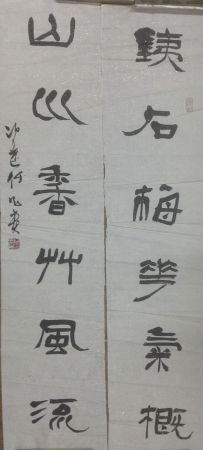 銕石梅華氣概
山川香艸風流